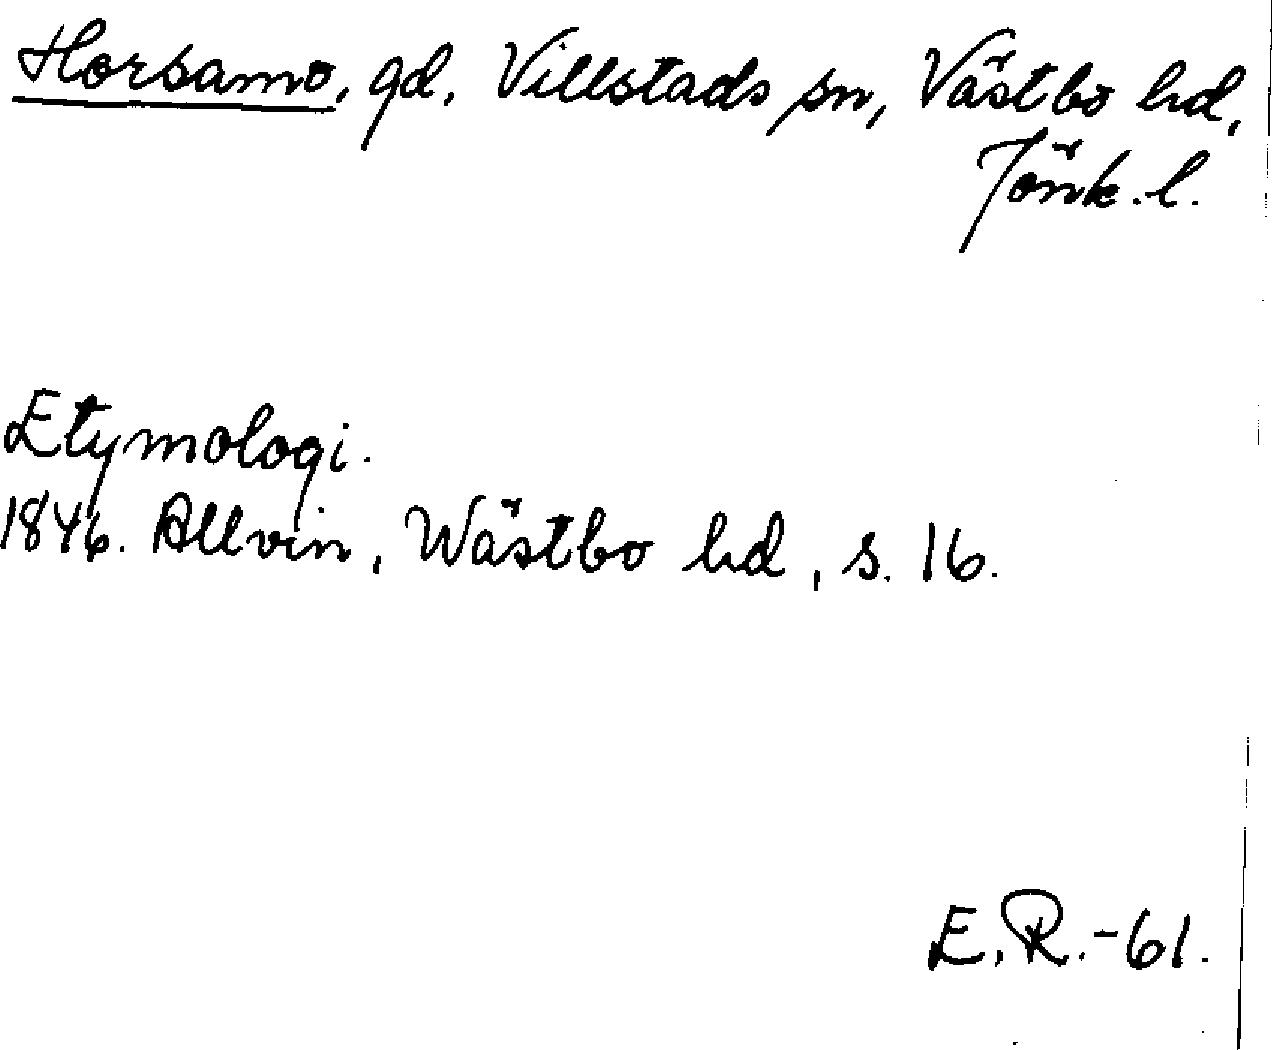 Horsamo, gd, Villstads sn, Västbo hd,
Jönk. l.
Etymologi.
1846. Allvin, Wästbo hd, s. 16.
E. R. -61.